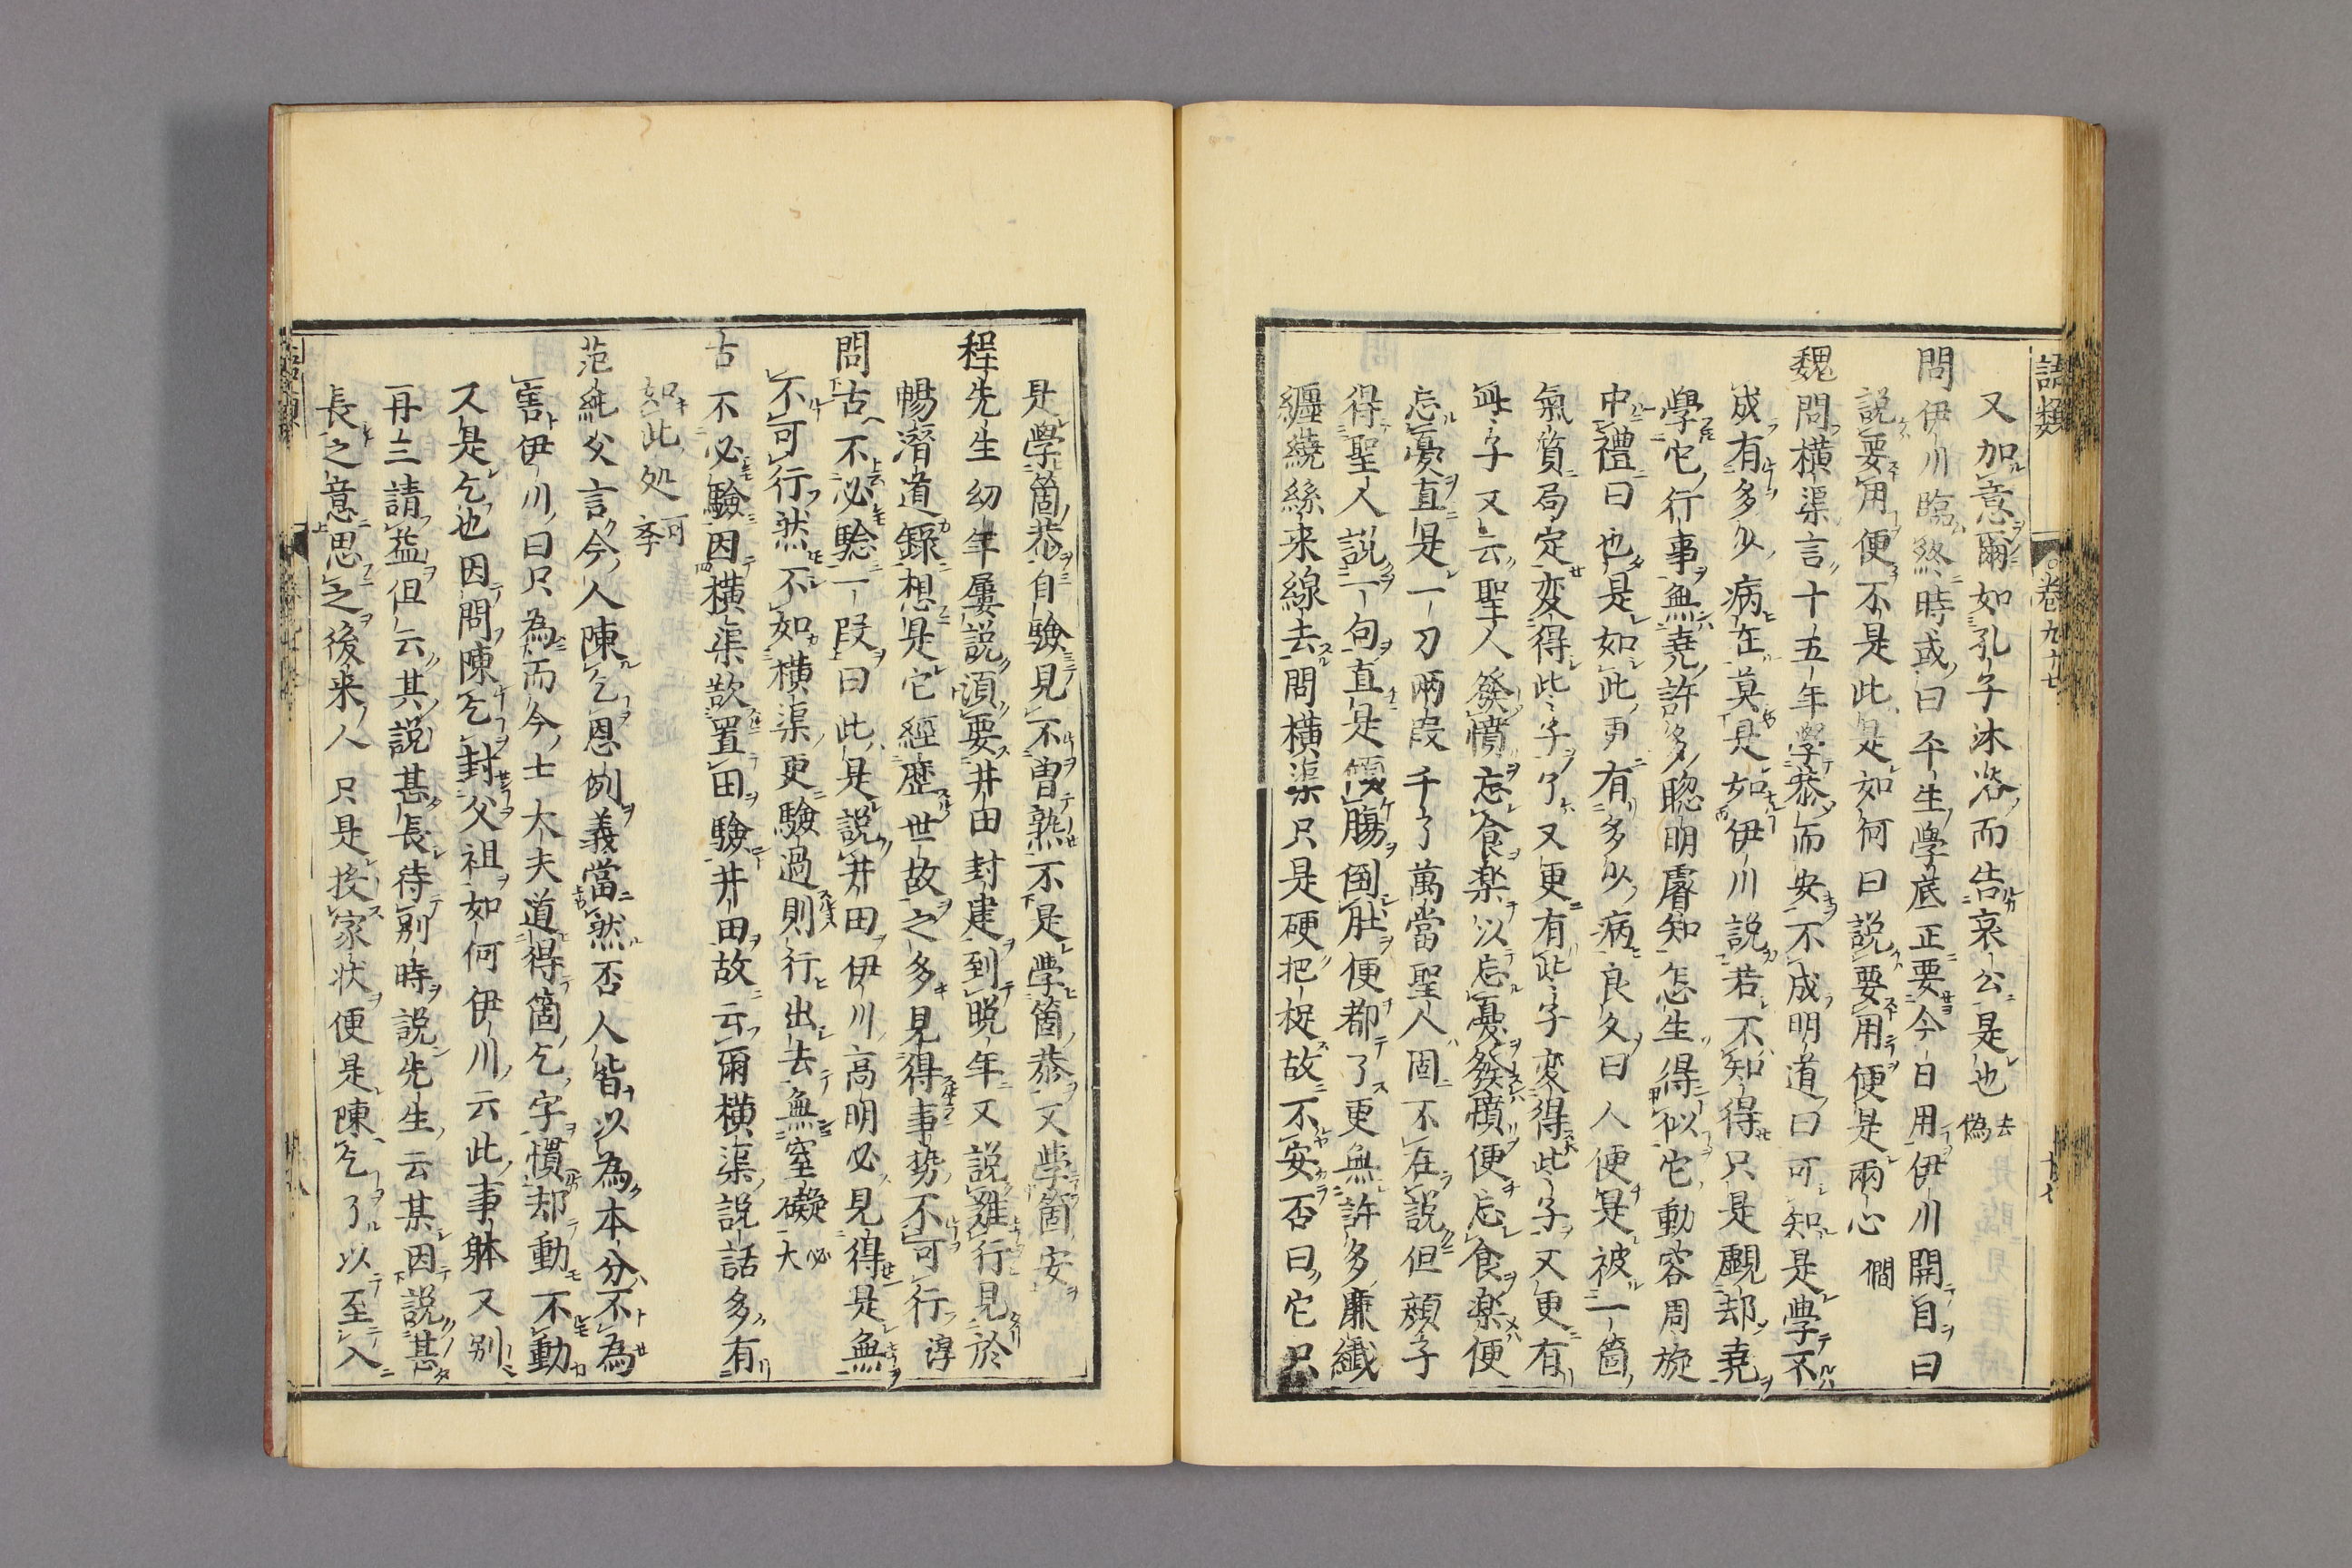 語類
卷九十七
又加意爾如孔子沐浴而告哀公是也去偽
問伊川臨終時或曰平生學底正要今日用伊川開目曰
説要用便不是此是如何曰説要用便是兩心僩
魏問横渠言十五年學恭而安不成明道曰可知是學不
成有多少病在莫是如伊川説若不知得只是覷却堯
學它行事無堯許多聡明睿知怎生得似它動容周旋
中禮曰也是如此更有多少病良久曰人便是被一箇
氣質局定変得此子了又更有此子変得此子又更有
無子又云聖人發憤忘食楽以忘憂發憤便忘食楽便
忘憂直是一刀兩段千了萬當聖人固不在説但顔子
得聖人説一句直是傾腸倒肚便都了更無許多廉纖
纏繞絲来線去問横渠只是硬把捉故不安否曰它只
是學箇恭自驗見不曽熟不是學箇恭又學箇安
程先生幼年屢説須要井田封建到晩年又説難行見於
暢潛道録想是它經歴世故之多見得事势不可行淳
問古不必驗一段曰此是説井田伊川高明必見得是無
不可行然不如横渠更驗過則行出去無窒礙大必
古不必驗因横渠欲置田驗井田故云爾横渠説話多有
如此処可季
范純父言今人陳乞恩例義當然否人皆以為本分不為
害伊川曰只為而今士大夫道得箇乞字慣却動不動
又是乞也因問陳乞封父祖如何伊川云此事躰又别
再三請益但云其説甚長待别時説先生云某因説甚
長之意思之後来人只是投家状便是陳乞了以至入